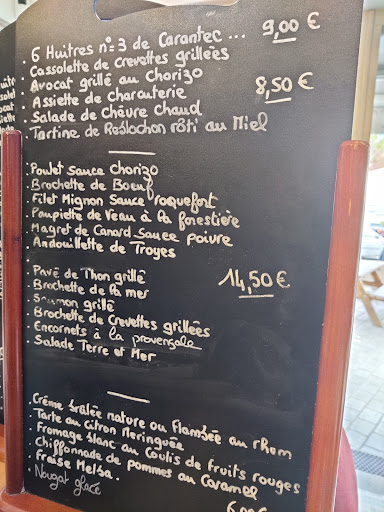 . 6 Huitres n°3 de Carantec ... 9,00 €
. Cassolette de crevettes grillées
. Avocat grillé au chorizo
. Assiette de charcuterie 8,50 €
. Salade de chèvre chaud
. Tartine de Reblochon rôti au Miel
. Poulet Sauce Chorizo
. Brochette de Boeuf
. Filet Mignon Sauce roquefort
. Paupiette de Veau à la forestière
. Magret de Canard Sauce poivre
. Andouillette de Troyes
. Pavé de Thon grillé
. Brochette de la mer 14,50 €
. Saumon grillé
. Brochette de Crevettes grillées
. Encornets à la provençale
. Salade Terre et Mer
. Crème brûlée nature ou Flambée au rhum
. Tarte au Citron Meringuée
. Fromage blanc au Coulis de fruits rouges
. Chiffonnade de pommes au Caramel
. Fraise Melba.
. Nougat glacé